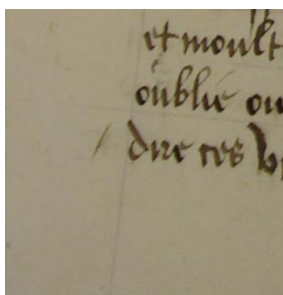 et moult
oublie ou
dire ces